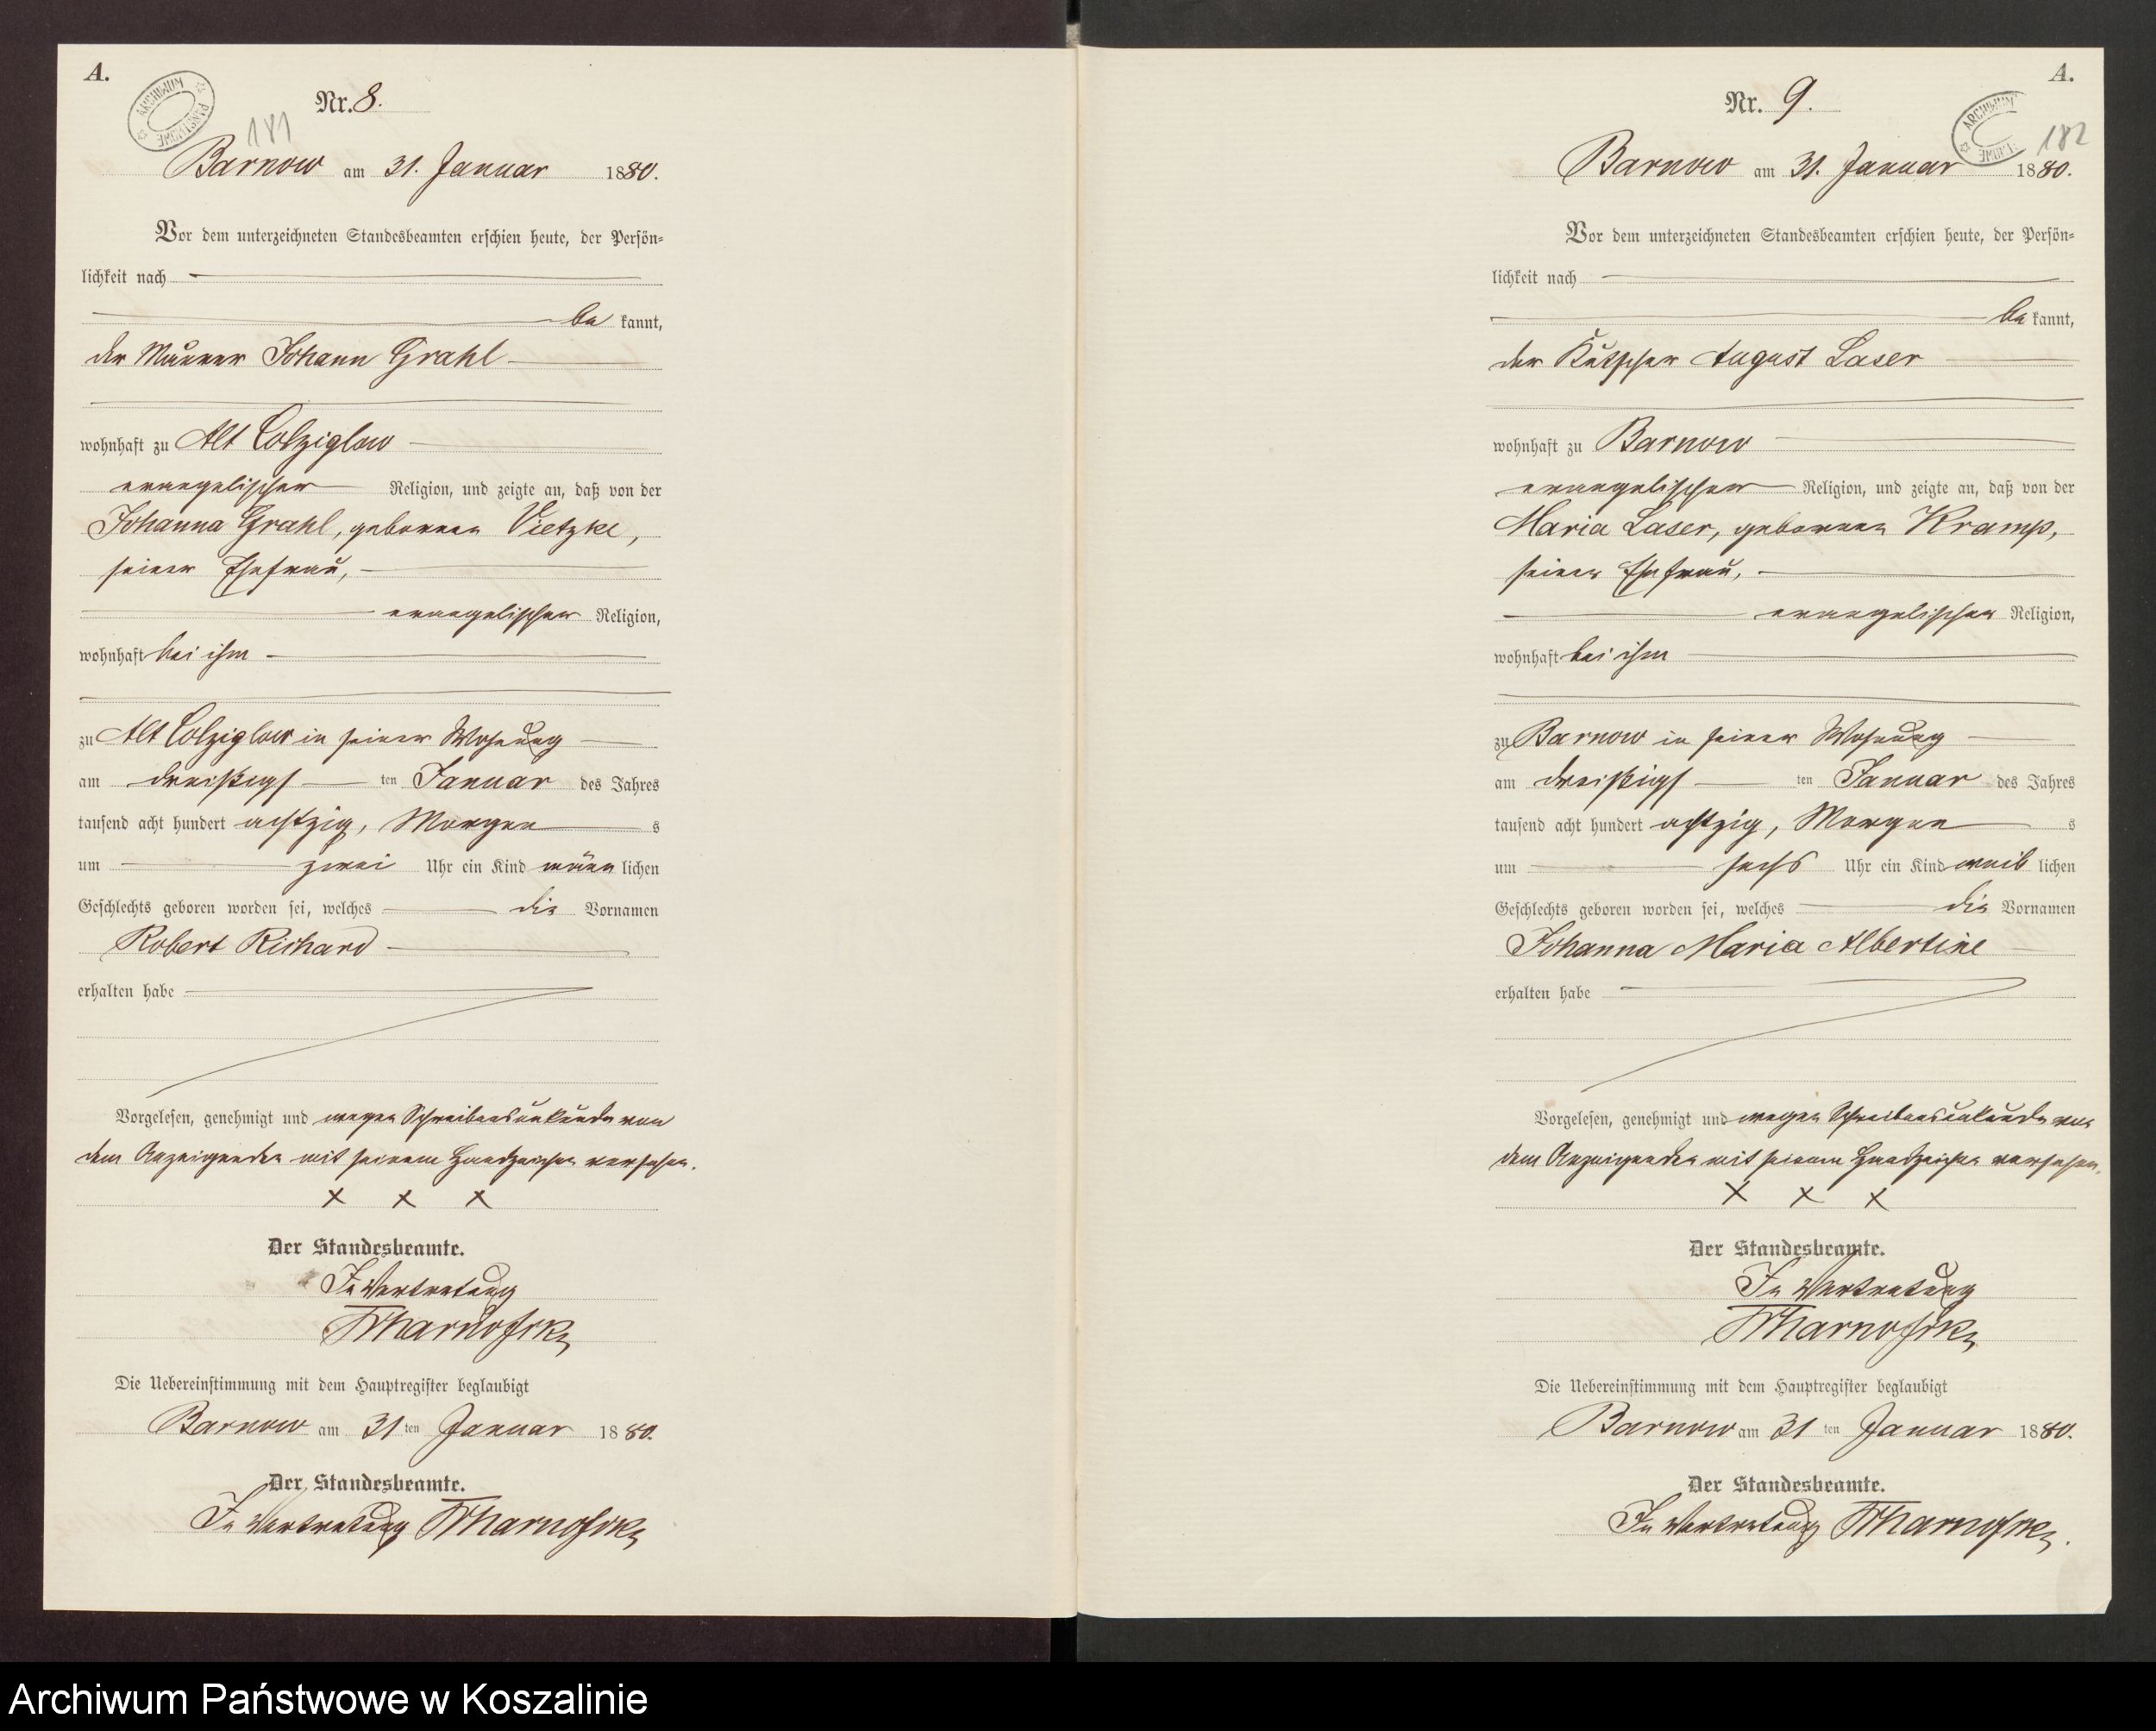 A.
ARCHIWUM PAŃSTWOWE
181
Nr. 8.
Barnow am 31. Januar 1880.
Vor dem unterzeichneten Standesbeamten erschien heute, der Persön-
lichkeit nach
be kannt,
der Maurer Johann Grahl
wohnhaft zu Alt Colziglow
evangelischer Religion, und zeigte an, daß von der
Johanna Grahl, geborenen Vietzke,
seiner Ehefrau,
evangelischer Religion,
wohnhaft bei ihm
zu Alt Colziglow in seiner Wohnung
am dreißigsten Januar des Jahres
tausend acht hundert achtzig, Morgens
um zwei Uhr ein Kind männlichen
Geschlechts geboren worden sei, welches die Vornamen
Robert Richard
erhalten habe
Vorgelesen, genehmigt und wegen Schreibensunkunde von
dem Anzeigenden mit seinem Handzeichen versehen.
x x x
Der Standesbeamte.
In Vertretung
Die Uebereinstimmung mit dem Hauptregister beglaubigt
Barnow am 31ten Januar 1880.
Der Standesbeamte.
In Vertretung
A.
ARCHIWUM
182
Nr. 9.
Barnow am 31. Januar 1880.
Vor dem unterzeichneten Standesbeamten erschien heute, der Persön-
lichkeit nach
be kannt,
der Kutscher August Laser
wohnhaft zu Barnow
evangelischer Religion, und zeigte an, daß von der
Maria Laser, geborenen Kramp,
seiner Ehefrau,
evangelischer Religion,
wohnhaft bei ihm
zu Barnow in seiner Wohnung
am dreißigsten Januar des Jahres
tausend acht hundert achtzig, Morgens
um sechs Uhr ein Kind weiblichen
Geschlechts geboren worden sei, welches die Vornamen
Johanna Maria Albertine
erhalten habe
Vorgelesen, genehmigt und wegen Schreibensunkunde von
dem Anzeigenden mit seinem Handzeichen versehen.
x x x
Der Standesbeamte.
In Vertretung
Die Uebereinstimmung mit dem Hauptregister beglaubigt
Barnow am 31 ten Januar 1880.
Der Standesbeamte.
In Vertretung
Archiwum Państwowe w Koszalinie